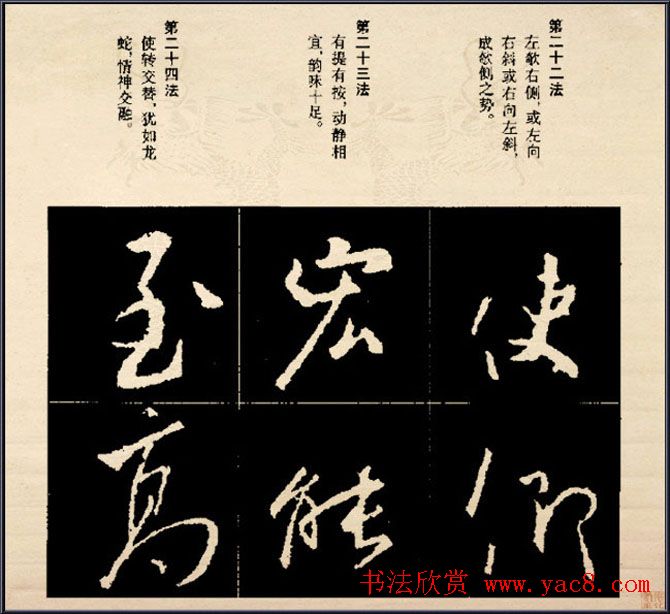 第二十二法
左欹右侧，或左向
右斜或右向左斜，
成欹侧之势。
第二十三法
有提有按，动静相
宜，韵味十足。
第二十四法
使转交替，犹如龙
蛇，情神交融。
使
宏
至
能
高
书法欣赏 www.yac8.com